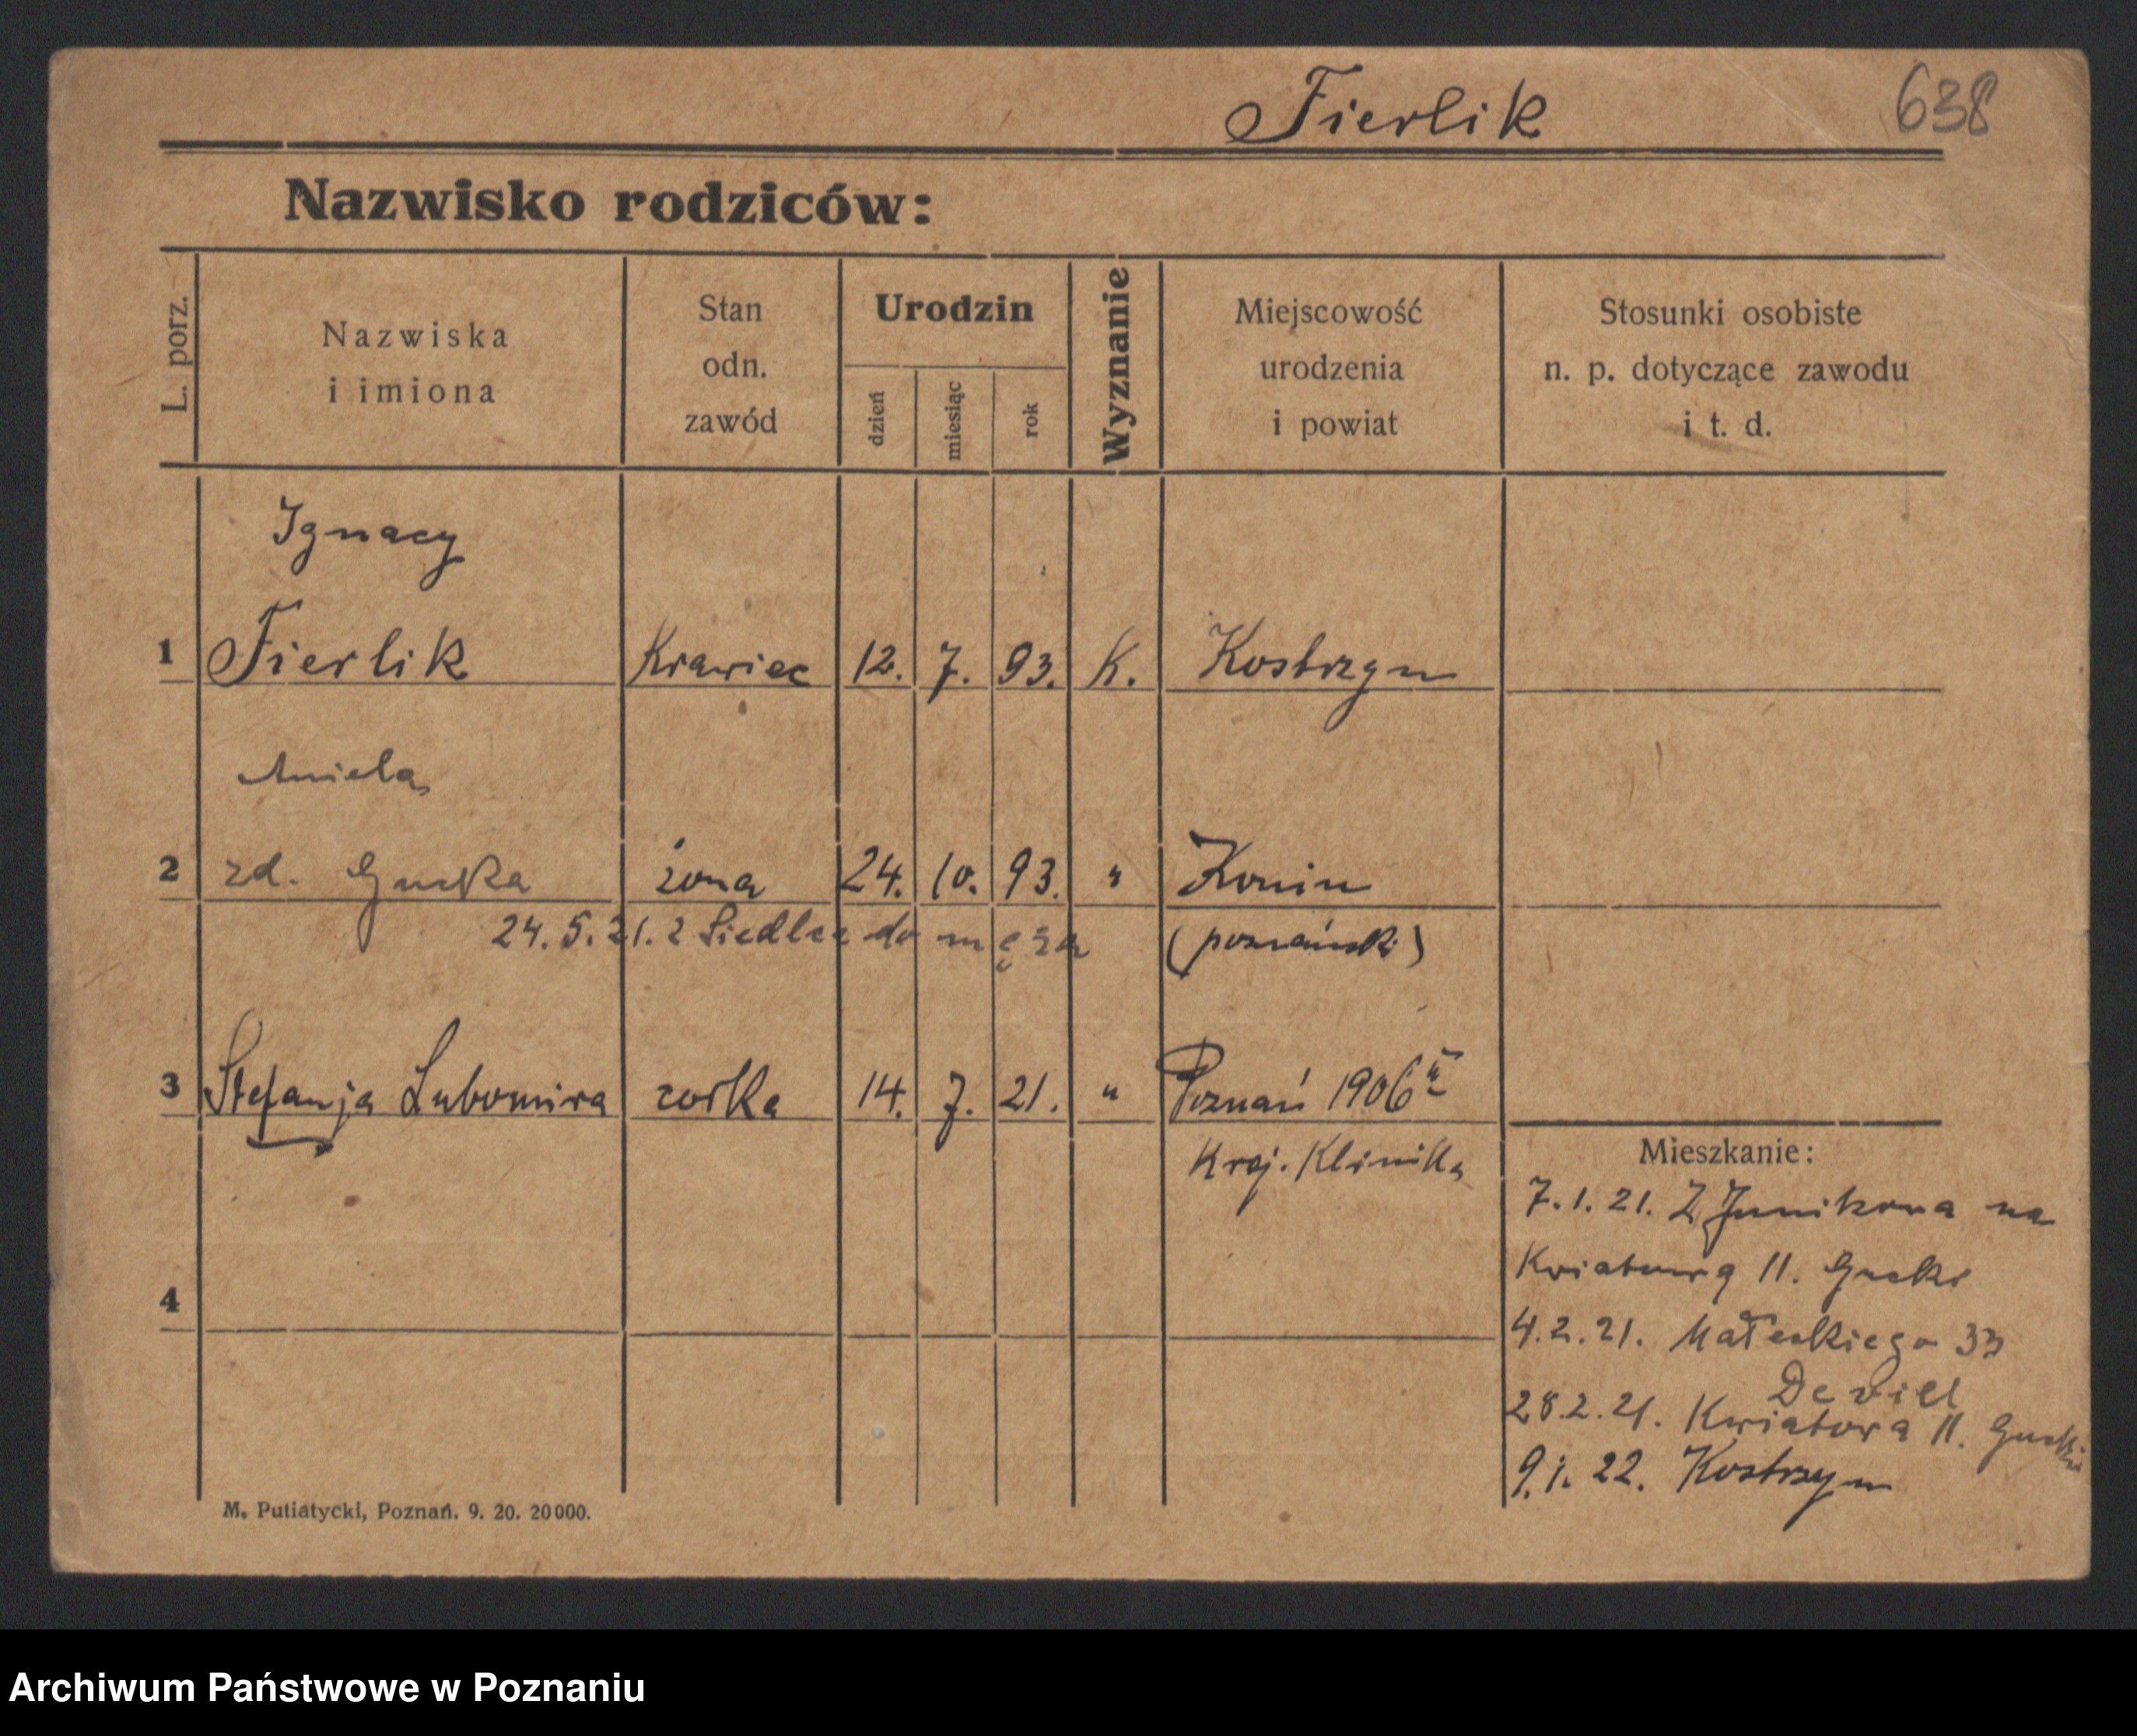 Fierlik
638
Nazwisko rodziców:
L. porz.
Nazwiska
i imiona
Stan
odn.
zawód
Urodzin
dzień
miesiąc
rok
Wyznanie
Miejscowość
urodzenia
i powiat
Stosunki osobiste
n. p. dotyczące zawodu
i t. d.
Ignacy
1 Fierlik Krawiec 12. 7. 93. K. Kostrzyn
Aniela
2 zd. żona 24. 10. 93. " Konin
24. 5. 21. z Siedlca do męża (poznański)
3 Stefanja Lubomira córka 14. 7. 21. " Poznań 1906
Kraj. Klinika
Mieszkanie:
7. 1. 21. Z Junikowa na
Kwiatową 11.
4. 2. 21. Małeckiego 33
28. 2. 21. Kwiatowa 11.
9. 1. 22. Kostrzyn
4
M. Putiatycki, Poznań. 9. 20. 20000.
Archiwum Państwowe w Poznaniu